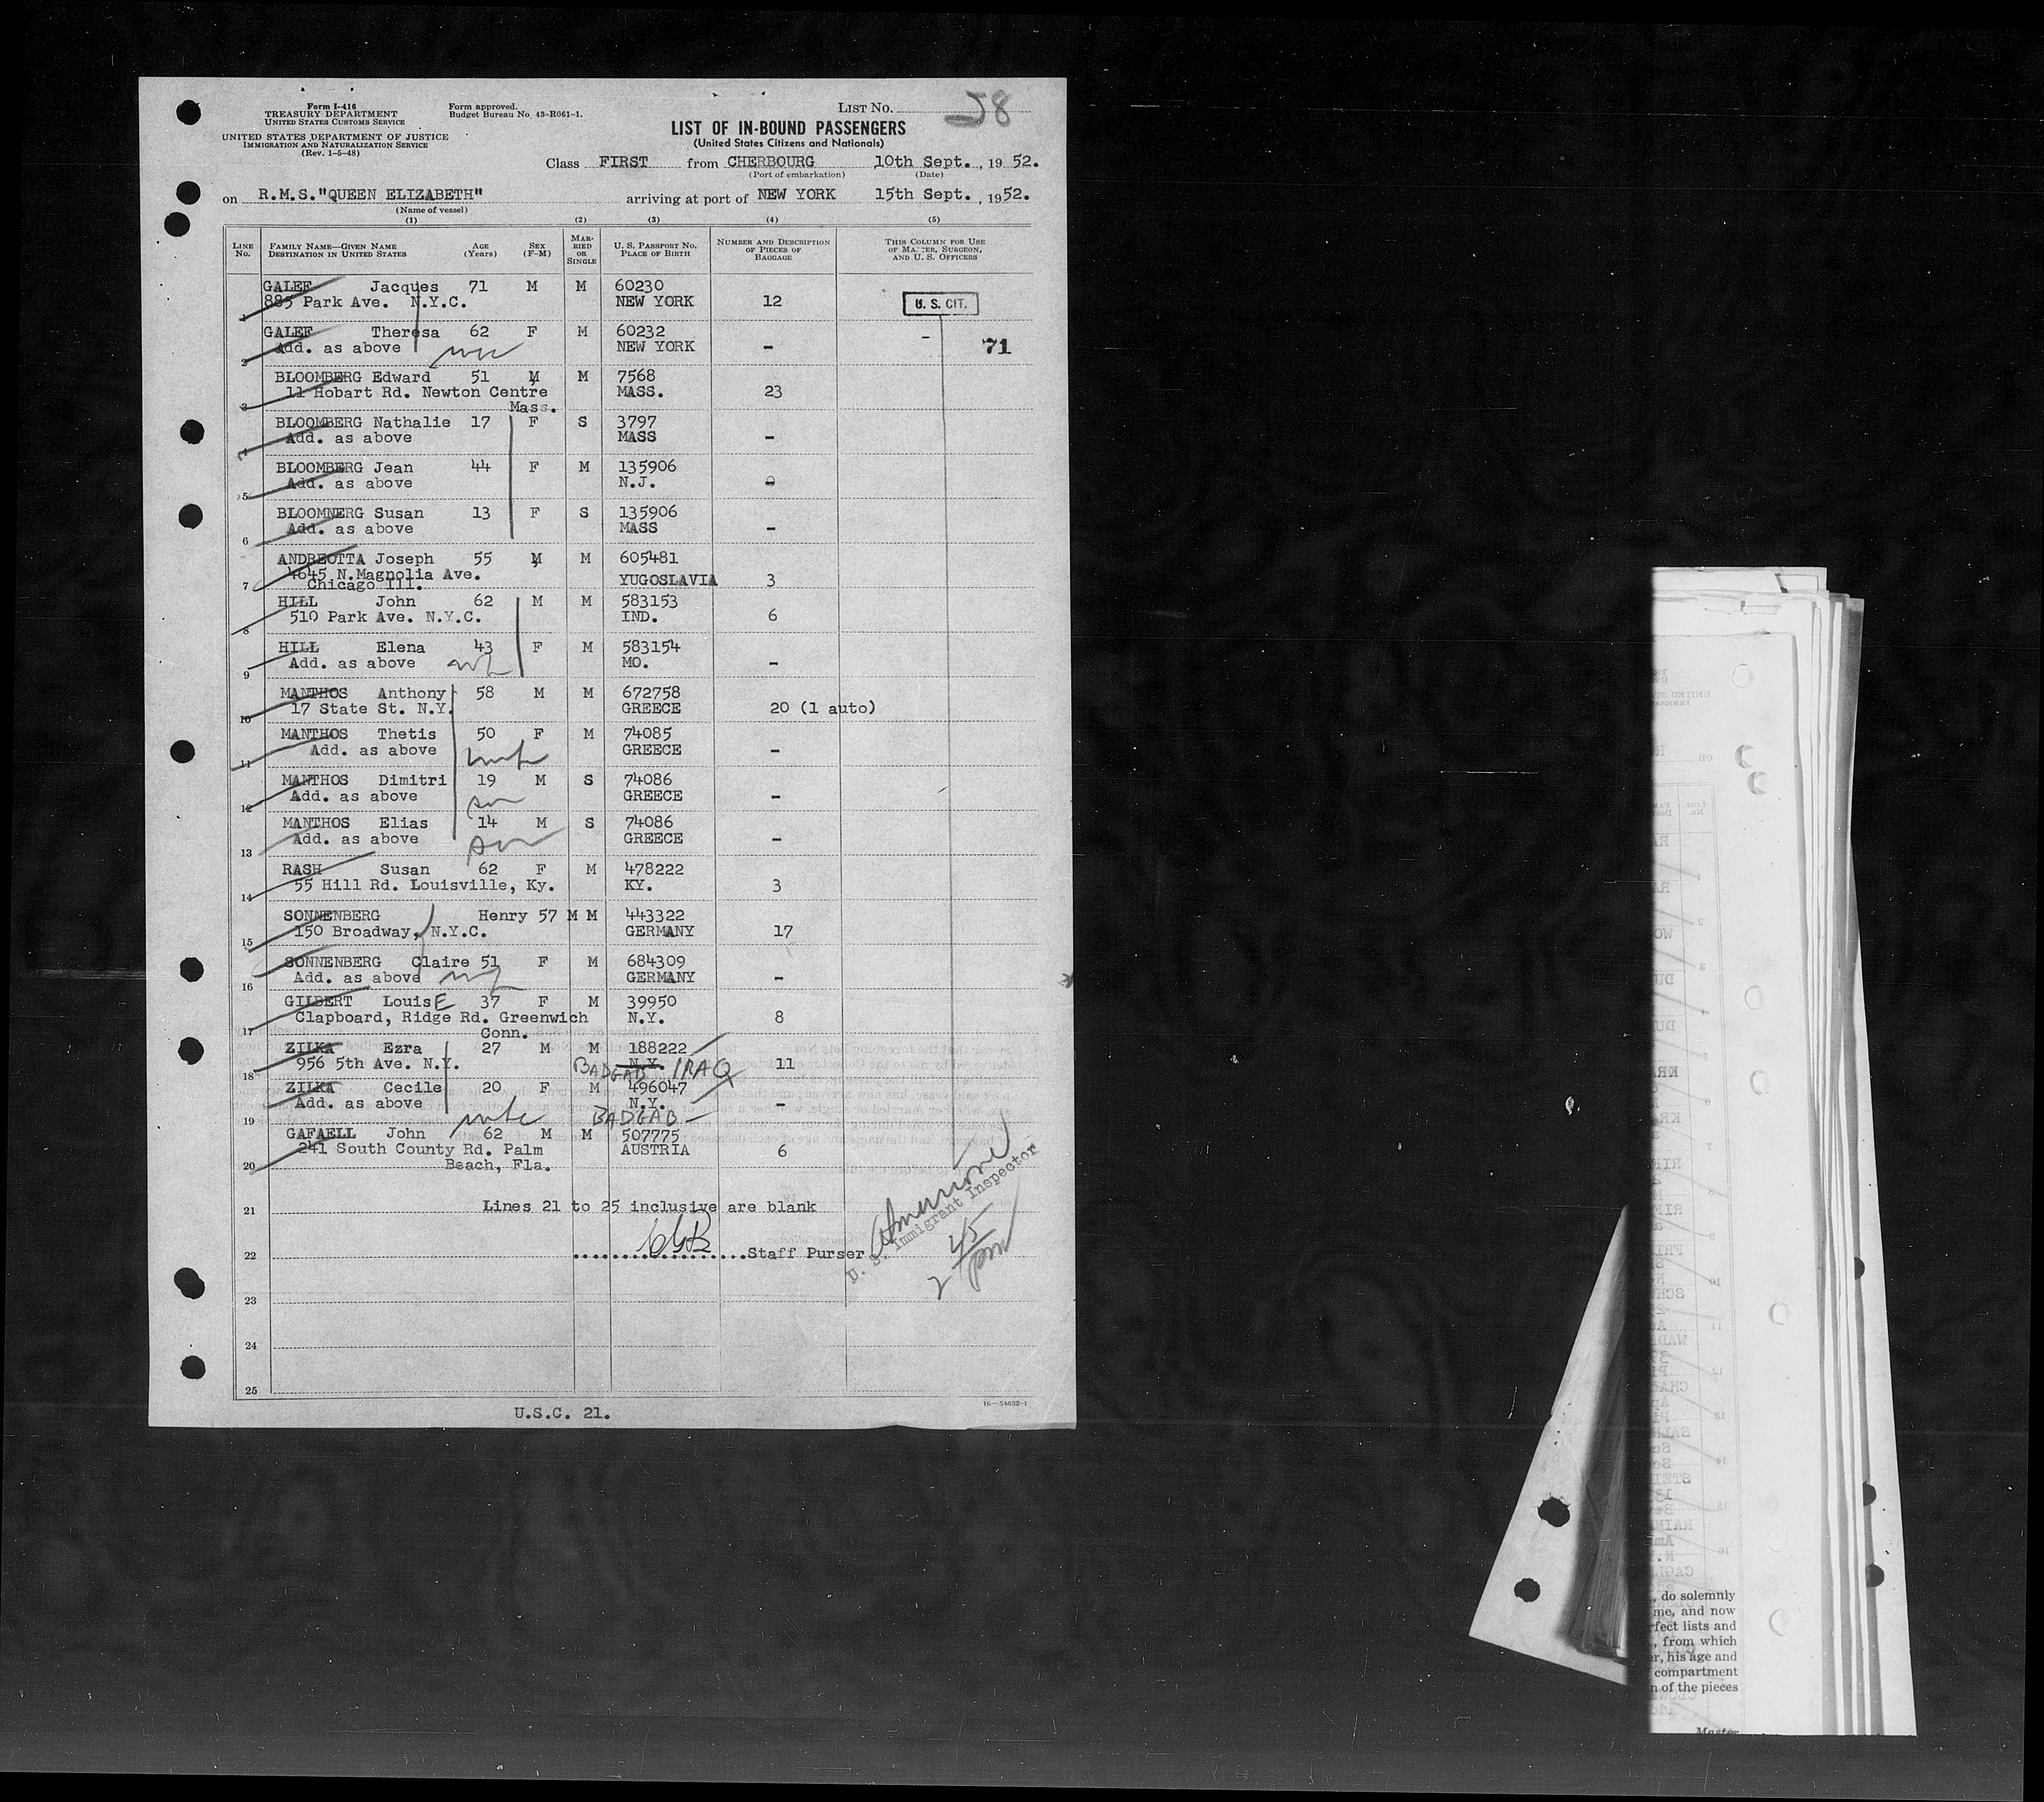 Form I-416
TREASURY DEPARTMENT
UNITED STATES CUSTOMS SERVICE
UNITED STATES DEPARTMENT OF JUSTICE
IMMIGRATION AND NATURALIZATION SERVICE
(Rev. 1-5-48)
Form approved.
Budget Bureau No. 43-R061-1.
LIST No. 58
LIST OF IN-BOUND PASSENGERS
(United States Citizens and Nationals)
Class FIRST from CHERBOURG 10th Sept., 1952.
(Port of embarkation) (Date)
on R.M.S."QUEEN ELIZABETH" arriving at port of NEW YORK 15th Sept., 1952.
(Name of vessel)
(1) (2) (3) (4) (5)
LINE No. FAMILY NAME—GIVEN NAME DESTINATION IN UNITED STATES AGE (Years) SEX (F-M) MARRIED OR SINGLE U. S. PASSPORT NO. PLACE OF BIRTH NUMBER AND DESCRIPTION OF PIECES OF BAGGAGE THIS COLUMN FOR USE OF MASTER, SURGEON, AND U. S. OFFICERS
GALEF Jacques 71 M M 60230
1 885 Park Ave. N.Y.C. NEW YORK 12 U. S. CIT.
GALEF Theresa 62 F M 60232
2 Add. as above NEW YORK - - 71
BLOOMBERG Edward 51 M M 7568
11 Hobart Rd. Newton Centre MASS. 23
3 Mass.
BLOOMBERG Nathalie 17 F S 3797
4 Add. as above MASS -
BLOOMBERG Jean 44 F M 135906
5 Add. as above N.J. -
BLOOMNERG Susan 13 F S 135906
6 Add. as above MASS -
ANDREOTTA Joseph 55 M M 605481
4645 N.Magnolia Ave. YUGOSLAVIA 3
7 Chicago Ill.
HILL John 62 M M 583153
8 510 Park Ave. N.Y.C. IND. 6
HILL Elena 43 F M 583154
9 Add. as above MO. -
MANTHOS Anthony 58 M M 672758
10 17 State St. N.Y. GREECE 20 (1 auto)
MANTHOS Thetis 50 F M 74085
11 Add. as above wife GREECE -
MANTHOS Dimitri 19 M S 74086
12 Add. as above son GREECE -
MANTHOS Elias 14 M S 74086
13 Add. as above son GREECE -
RASH Susan 62 F M 478222
14 55 Hill Rd. Louisville, Ky. KY. 3
SONNENBERG Henry 57 M M 443322
15 150 Broadway, N.Y.C. GERMANY 17
SONNENBERG Claire 51 F M 684309
16 Add. as above GERMANY -
GILBERT LouisE 37 F M 39950
17 Clapboard, Ridge Rd. Greenwich N.Y. 8
Conn.
ZILKA Ezra 27 M M 188222
18 956 5th Ave. N.Y. N.Y. BADGAB IRAQ 11
ZILKA Cecile 20 F M 496047
19 Add. as above wife N.Y. BADGAB -
GAFAELL John 62 M M 507775
20 241 South County Rd. Palm AUSTRIA 6
Beach, Fla.
21 Lines 21 to 25 inclusive are blank
22 ....................Staff Purser
U. S. Immigrant Inspector
2 45 pm
23
24
25
U.S.C. 21.
16—54632-1
, do solemnly
me, and now
rfect lists and
, from which
er, his age and
compartment
n of the pieces
Master